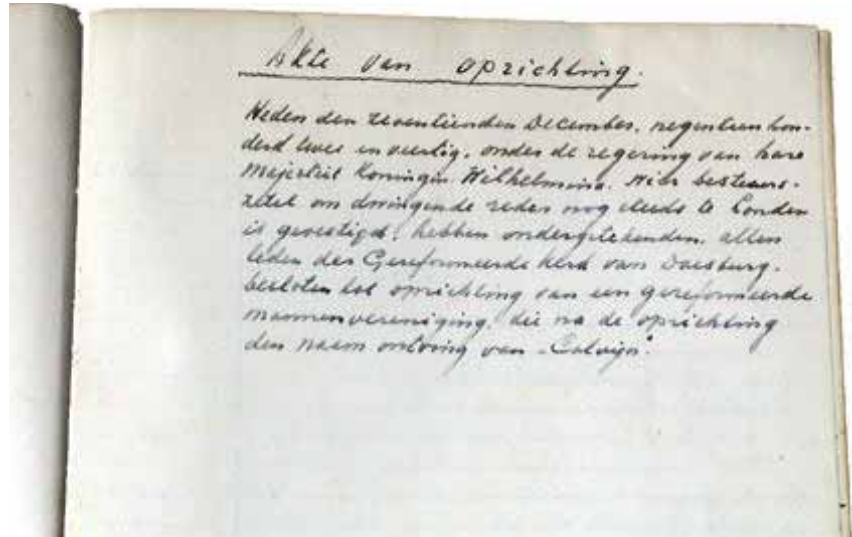 Akte van oprichting.
Heden den zeventienden December, negentien hon-
derd twee en veertig, onder de regering van hare
Majesteit Koningin Wilhelmina, wier bestuurs-
zetel om dringende reden nog steeds te Londen
is gevestigd, hebben ondergetekenden, allen
leden der Gereformeerde Kerk van Doesburg,
besloten tot oprichting van een gereformeerde
mannenvereniging, die na de oprichting
den naam ontving van "Calvijn".